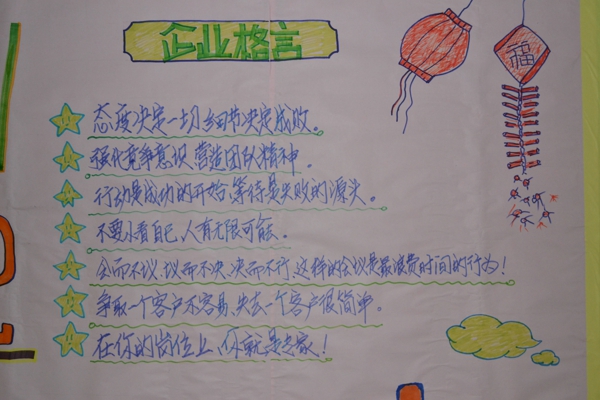 企业格言
福
态度决定一切,细节决定成败。
强化竞争意识,营造团队精神。
行动是成功的开始,等待是失败的源头。
不要小看自己,人有无限可能。
会而不议,议而不决,决而不行,这样的会议是最浪费时间的行为!
争取一个客户不容易,失去一个客户很简单。
在你的岗位上,你就是专家!